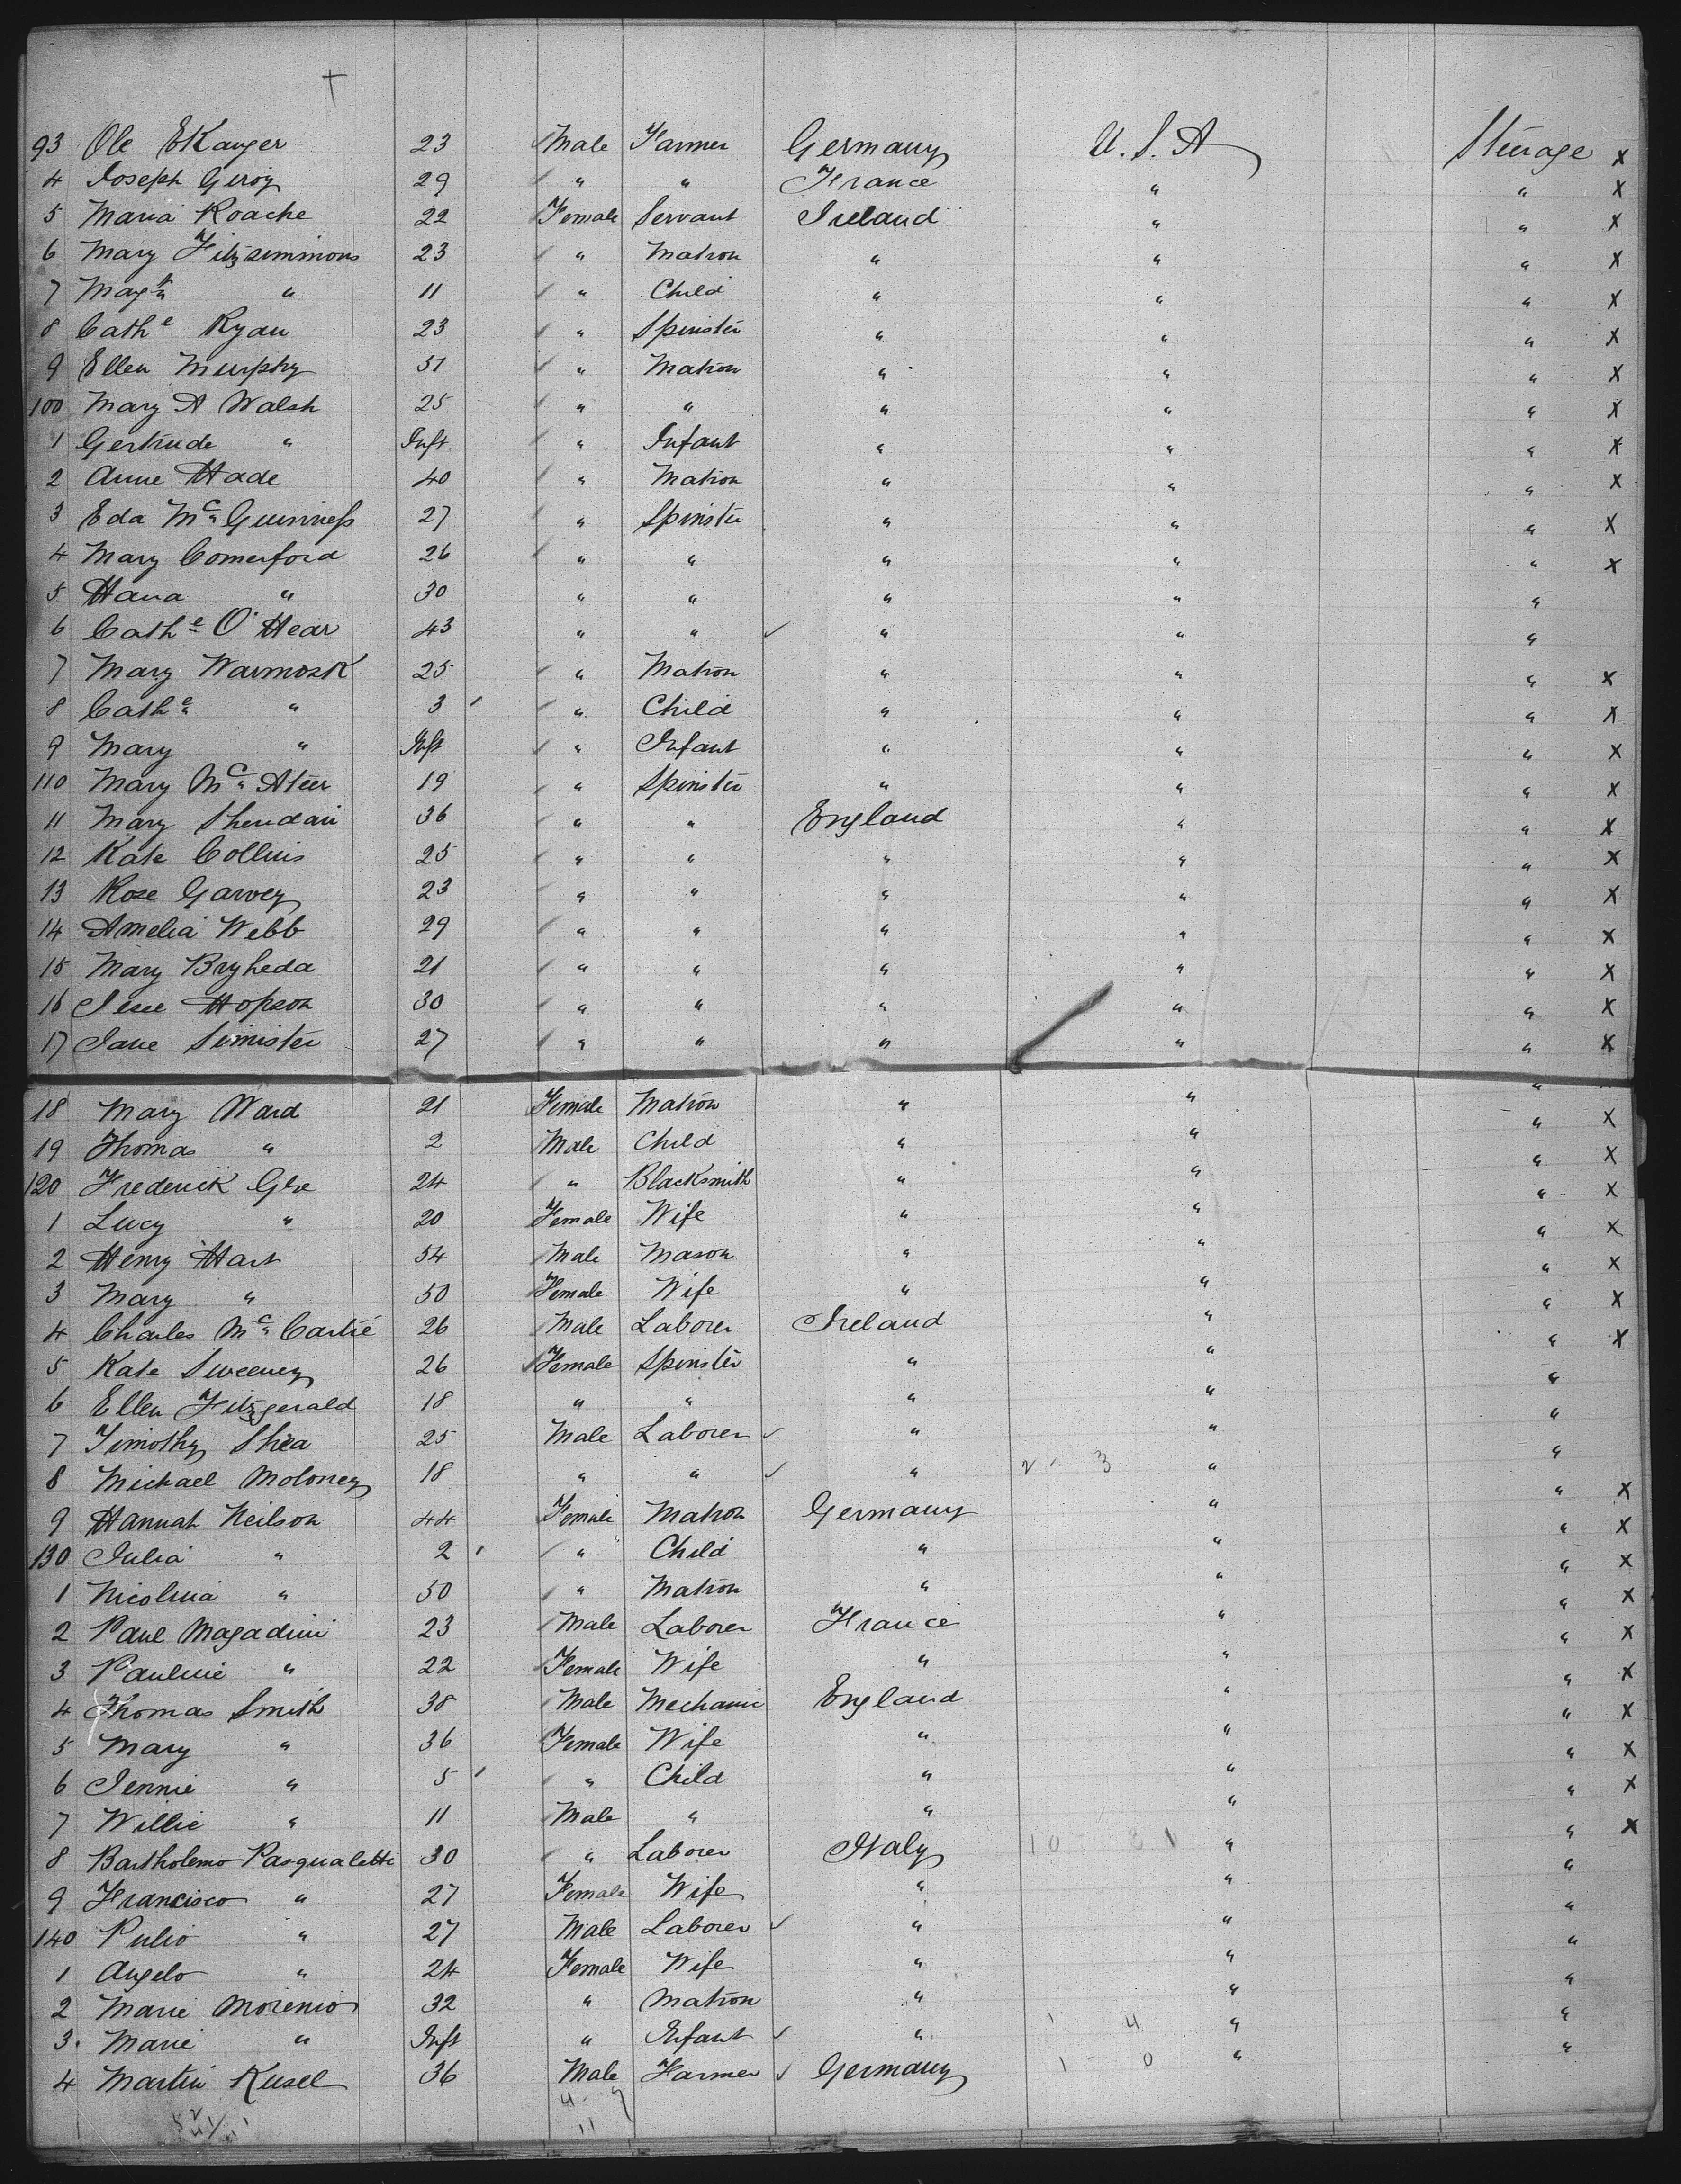 93 Ole EKanger 23 Male Farmer Germany U.S.A Steerage X
4 Joseph Geroy 29 " " France " " X
5 Maria Roache 22 Female Servant Ireland " " X
6 Mary Fitzsimmons 23 " Matron " " " X
7 Magt " 11 " Child " " " X
8 Cathe Ryan 23 " Spinster " " " X
9 Ellen Murphy 51 " Matron " " " X
100 Mary A Walsh 25 " " " " " X
1 Gertrude " Inft " Infant " " " X
2 Anne Hade 40 " Matron " " " X
3 Eda McGuinness 27 " Spinster " " " X
4 Mary Comerford 26 " " " " " X
5 Hana " 30 " " " " "
6 Cathe O'Hear 43 " " ✓ " " "
7 Mary Warmosk 25 " Matron " " " X
8 Cathe " 3 " Child " " " X
9 Mary " Inft " Infant " " " X
110 Mary McAteer 19 " Spinster " " " X
11 Mary Sheridan 36 " " England " " X
12 Kate Collins 25 " " " " " X
13 Rose Garvey 23 " " " " " X
14 Amelia Webb 29 " " " " " X
15 Mary Bryheda 21 " " " " " X
16 Jesse Hopson 30 " " " " " X
17 Jane Simister 27 " " " " " X
18 Mary Ward 21 Female Matron " " "
19 Thomas " 2 Male Child " " " X
120 Frederick 24 " Blacksmith " " " X
1 Lucy " 20 Female Wife " " " X
2 Henry Hart 54 Male Mason " " " X
3 Mary " 50 Female Wife " " " X
4 Charles McCartie 26 Male Laborer Ireland " " X
5 Kate Sweeney 26 Female Spinster " " " X
6 Ellen Fitzgerald 18 " " " " "
7 Timothy Shea 25 Male Laborer ✓ " " "
8 Michael Moloney 18 " " ✓ " 2 - 3 " "
9 Hannah Neilson 44 Female Matron Germany " " X
130 Julia " 2 " Child " " " X
1 Nicolina " 50 " Matron " " " X
2 Paul Magadini 23 Male Laborer France " " X
3 Pauline " 22 Female Wife " " " X
4 Thomas Smith 38 Male Mechanic England " " X
5 Mary " 36 Female Wife " " " X
6 Jennie " 5 " Child " " " X
7 Willie " 11 Male " " " " X
8 Bartholemo Pasqualetti 30 " Laborer Italy " " X
9 Francisco " 27 Female Wife " " "
140 Pulio " 27 Male Laborer ✓ " " "
1 Angelo " 24 Female Wife " " "
2 Marie Morenio 32 " Matron " " "
3 Marie " Inft " Infant ✓ " 1 4 " "
4 Martin Kusel 36 Male Farmer ✓ Germany 1 - 0 " "